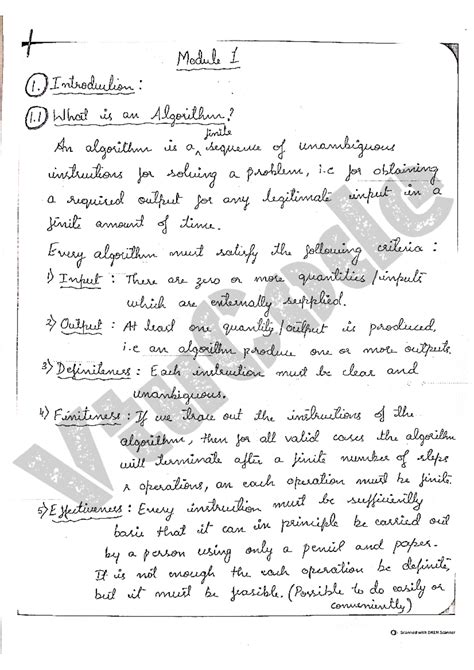 Module 1
1. Introduction :
1.1 What is an Algorithm?
finite
An algorithm is a ^ sequence of unambiguous
instructions for solving a problem, i.e for obtaining
a required output for any legitimate input in a
finite amount of time.
Every algorithm must satisfy the following criteria :
1) Input : There are zero or more quantities /inputs
which are externally supplied.
2) Output : At least one quantity /output is produced,
i.e an algorithm produce one or more outputs.
3) Definiteness : Each instruction must be clear and
unambiguous.
4) Finiteness : If we trace out the instructions of the
algorithm, then for all valid cases the algorithm
will terminate after a finite number of steps
operations, an each operation must be finite.
5) Effectiveness : Every instruction must be sufficiently
basic that it can in principle be carried out
by a person using only a pencil and paper.
It is not enough the each operation be definite,
but it must be feasible. (Possible to do easily or
conveniently)
VtuCode
Scanned with OKEN Scanner